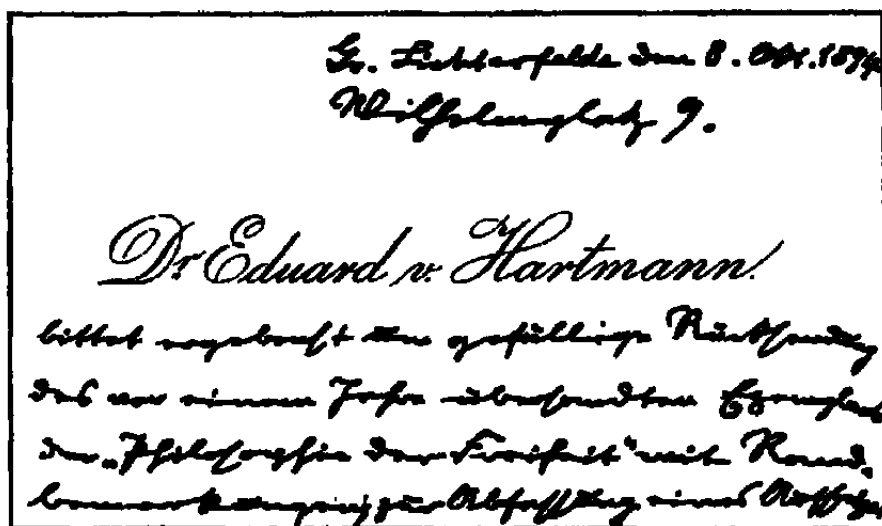 Gr. Lichterfelde den 8. Okt. 1894
Wilhelmplatz 9.
Dr Eduard v. Hartmann.
bittet ergebenst um gefällige Rücksendung
des vor einem Jahre übersandten Exemplars
der „Philosophie der Freiheit“ mit Rand-
bemerkungen zur Abfassung eines Aufsatzes